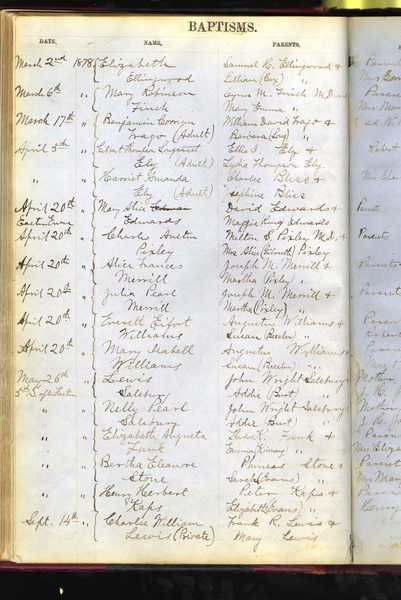 BAPTISMS.
DATE. NAME. PARENTS.
March 2nd 1878 Elizabeth Samuel R. Ellingwood &
Ellingwood Lillian (Cox) "
March 6th " Mary Robinson Cyrus M. Finch M.D. &
Finch Mary Emma "
March 17th " Benjamin Corwyn William David Frago &
Frago (Adult) Barbara "
April 5th " Longstreet Ellis I. Ely &
Ely (Adult) Lydia Thompson Ely
" " Harriet Amanda Charles Bliss &
Ely (Adult) Josephine Bliss
April 20th " Mary Alice David Edwards &
Easter Even Edwards Maggie King Edwards
April 20th " Charles Austin Milton S. Pixley M.D. &
Pixley Mrs Alice Pixley
April 20th " Alice Frances Joseph M. Merrill &
Merrill Martha (Pixley) "
April 20th " Julia Pearl Joseph M. Merrill &
Merrill Martha (Pixley) "
April 20th " Everett Eifort Augustus Williams &
Williams Susan (Beeler) "
April 20th " Mary Isabell Augustus Williams
Williams Susan (Beeler) "
May 26th " Lewis John Wright Salsbury
Salsbury Addie (Burt) "
" " Nelly Pearl John Wright Salsbury
Salsbury Addie (Burt) "
" " Elizabeth Augusta Funk &
Funk Emma (Kinney) "
" " Bertha Eleanore Phineas Stone &
Stone Sarah (Evans) "
" " Henry Herbert Peter Kaps &
Kaps Elizabeth (Evans) "
Sept. 14th " Charlie William Frank R. Lewis &
Lewis (Private) Mary Lewis